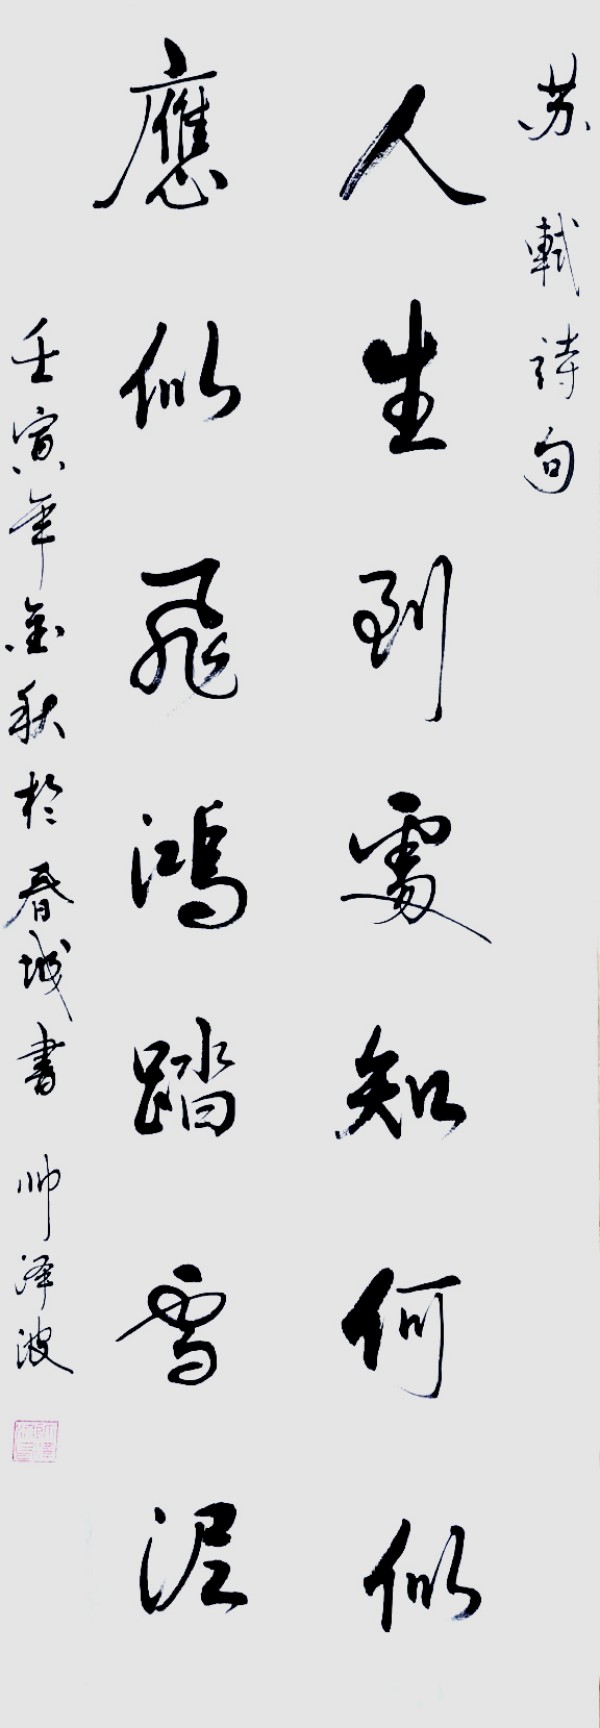 苏軾詩句
人生到處知何似
應似飛鴻踏雪泥
壬寅年金秋於春城书 帅泽波